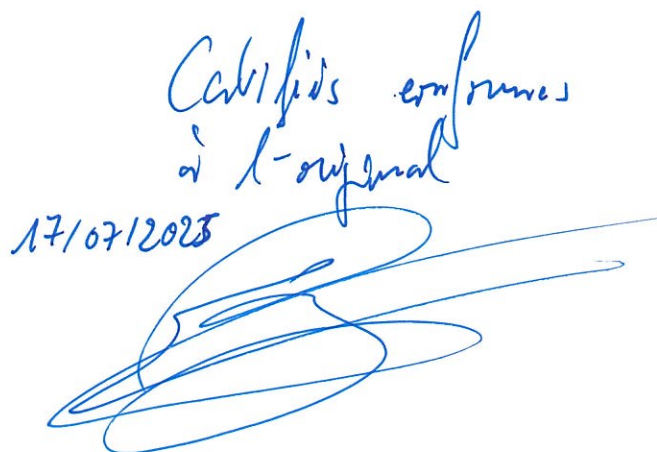 Certifiés conformes
à l'original
17/07/2025